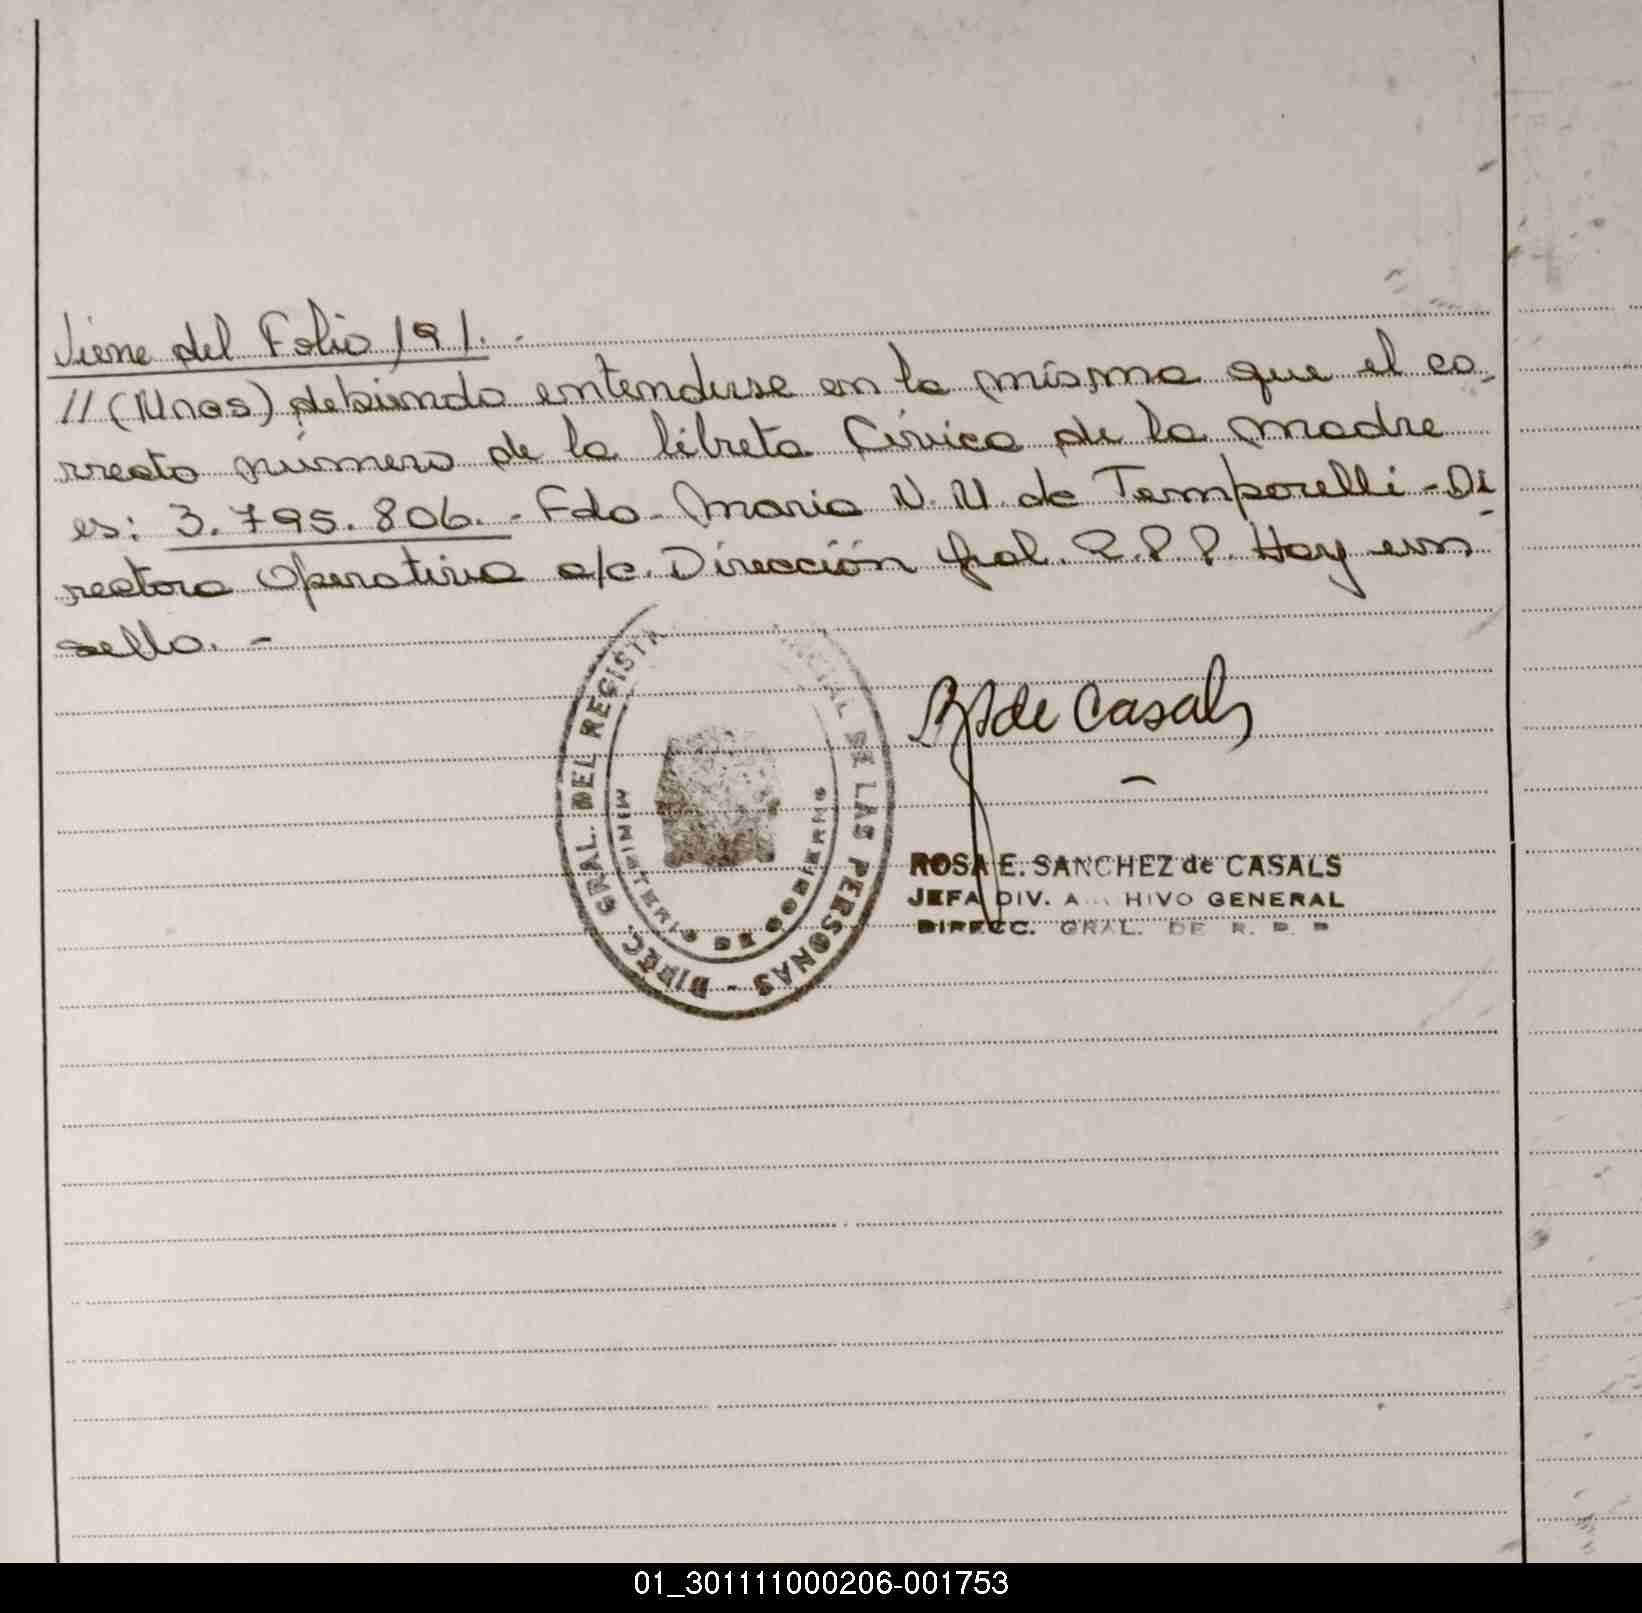 Viene del Folio 191. -
//(Unas) debiendo entenderse en la misma que el co-
rrecto número de la libreta Cívica de la madre
es: 3.795.806. - Fdo. Maria N. U. de Temporelli - Di-
rectora Operativa a/c. Dirección gral. R.P.P. Hay un
sello. -
R S de Casals
ROSA E. SANCHEZ de CASALS
JEFA DIV. A HIVO GENERAL
DIRECC. GRAL. DE R. P. P
DIREC. GRAL. DEL REGISTR CIAL DE LAS PERSONAS -
MINISTERIO DE GOBIERNO
01_301111000206-001753